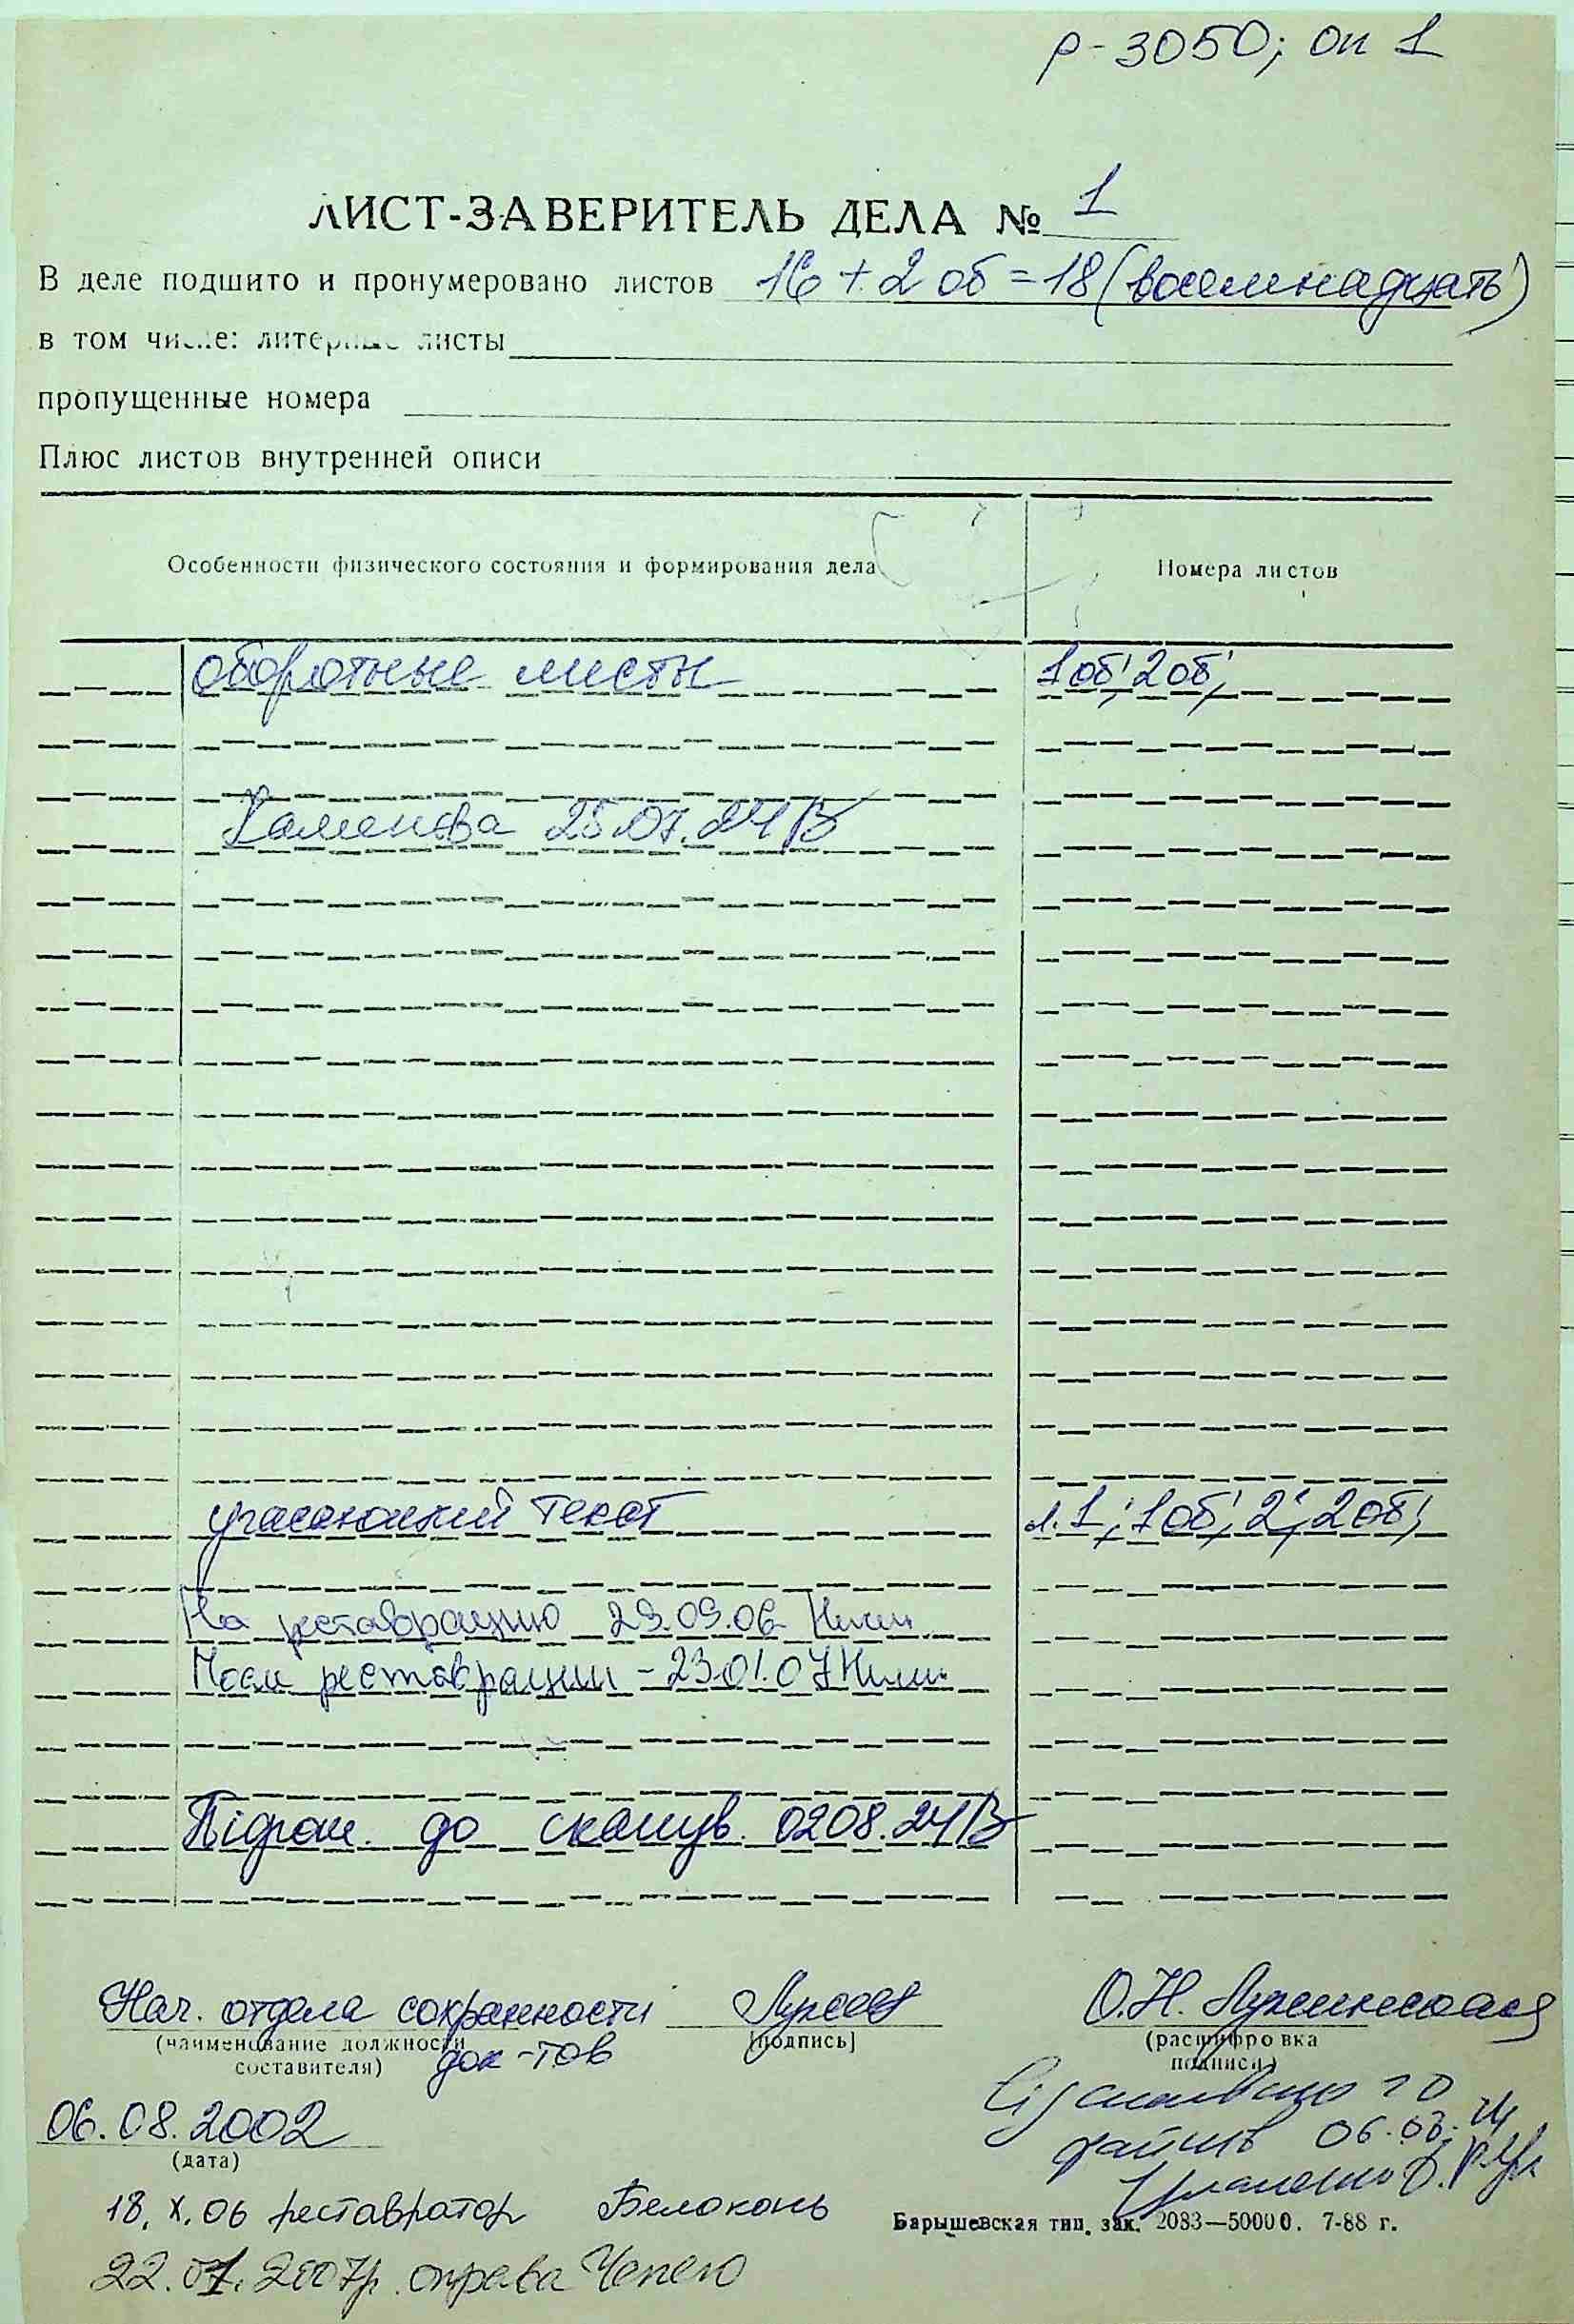 р-3050; оп 1
ЛИСТ-ЗАВЕРИТЕЛЬ ДЕЛА № 1
В деле подшито и пронумеровано листов 16 + 2 об = 18 (восемнадцать)
в том числе: литерные листы
пропущенные номера
Плюс листов внутренней описи
Особенности физического состояния и формирования дела
Номера листов
оборотные листы 1об; 2об;
25.07.24
угасающий текст л. 1; 1об; 2; 2об;
На реставрацию 29.09.06
После реставрации - 23.01.07
до сканув. 02.08.24
Нач. отдела сохранности
док-тов
(наименование должности
составителя)
[подпись]
(расшифровка
подписи)
О.Н.
06.08.2002
(дата)
файлів 06.08.24
18.X.06 реставратор Белоконь
22.01.2007р. оправа
Барышевская тип. зак. 2083—50000. 7-88 г.